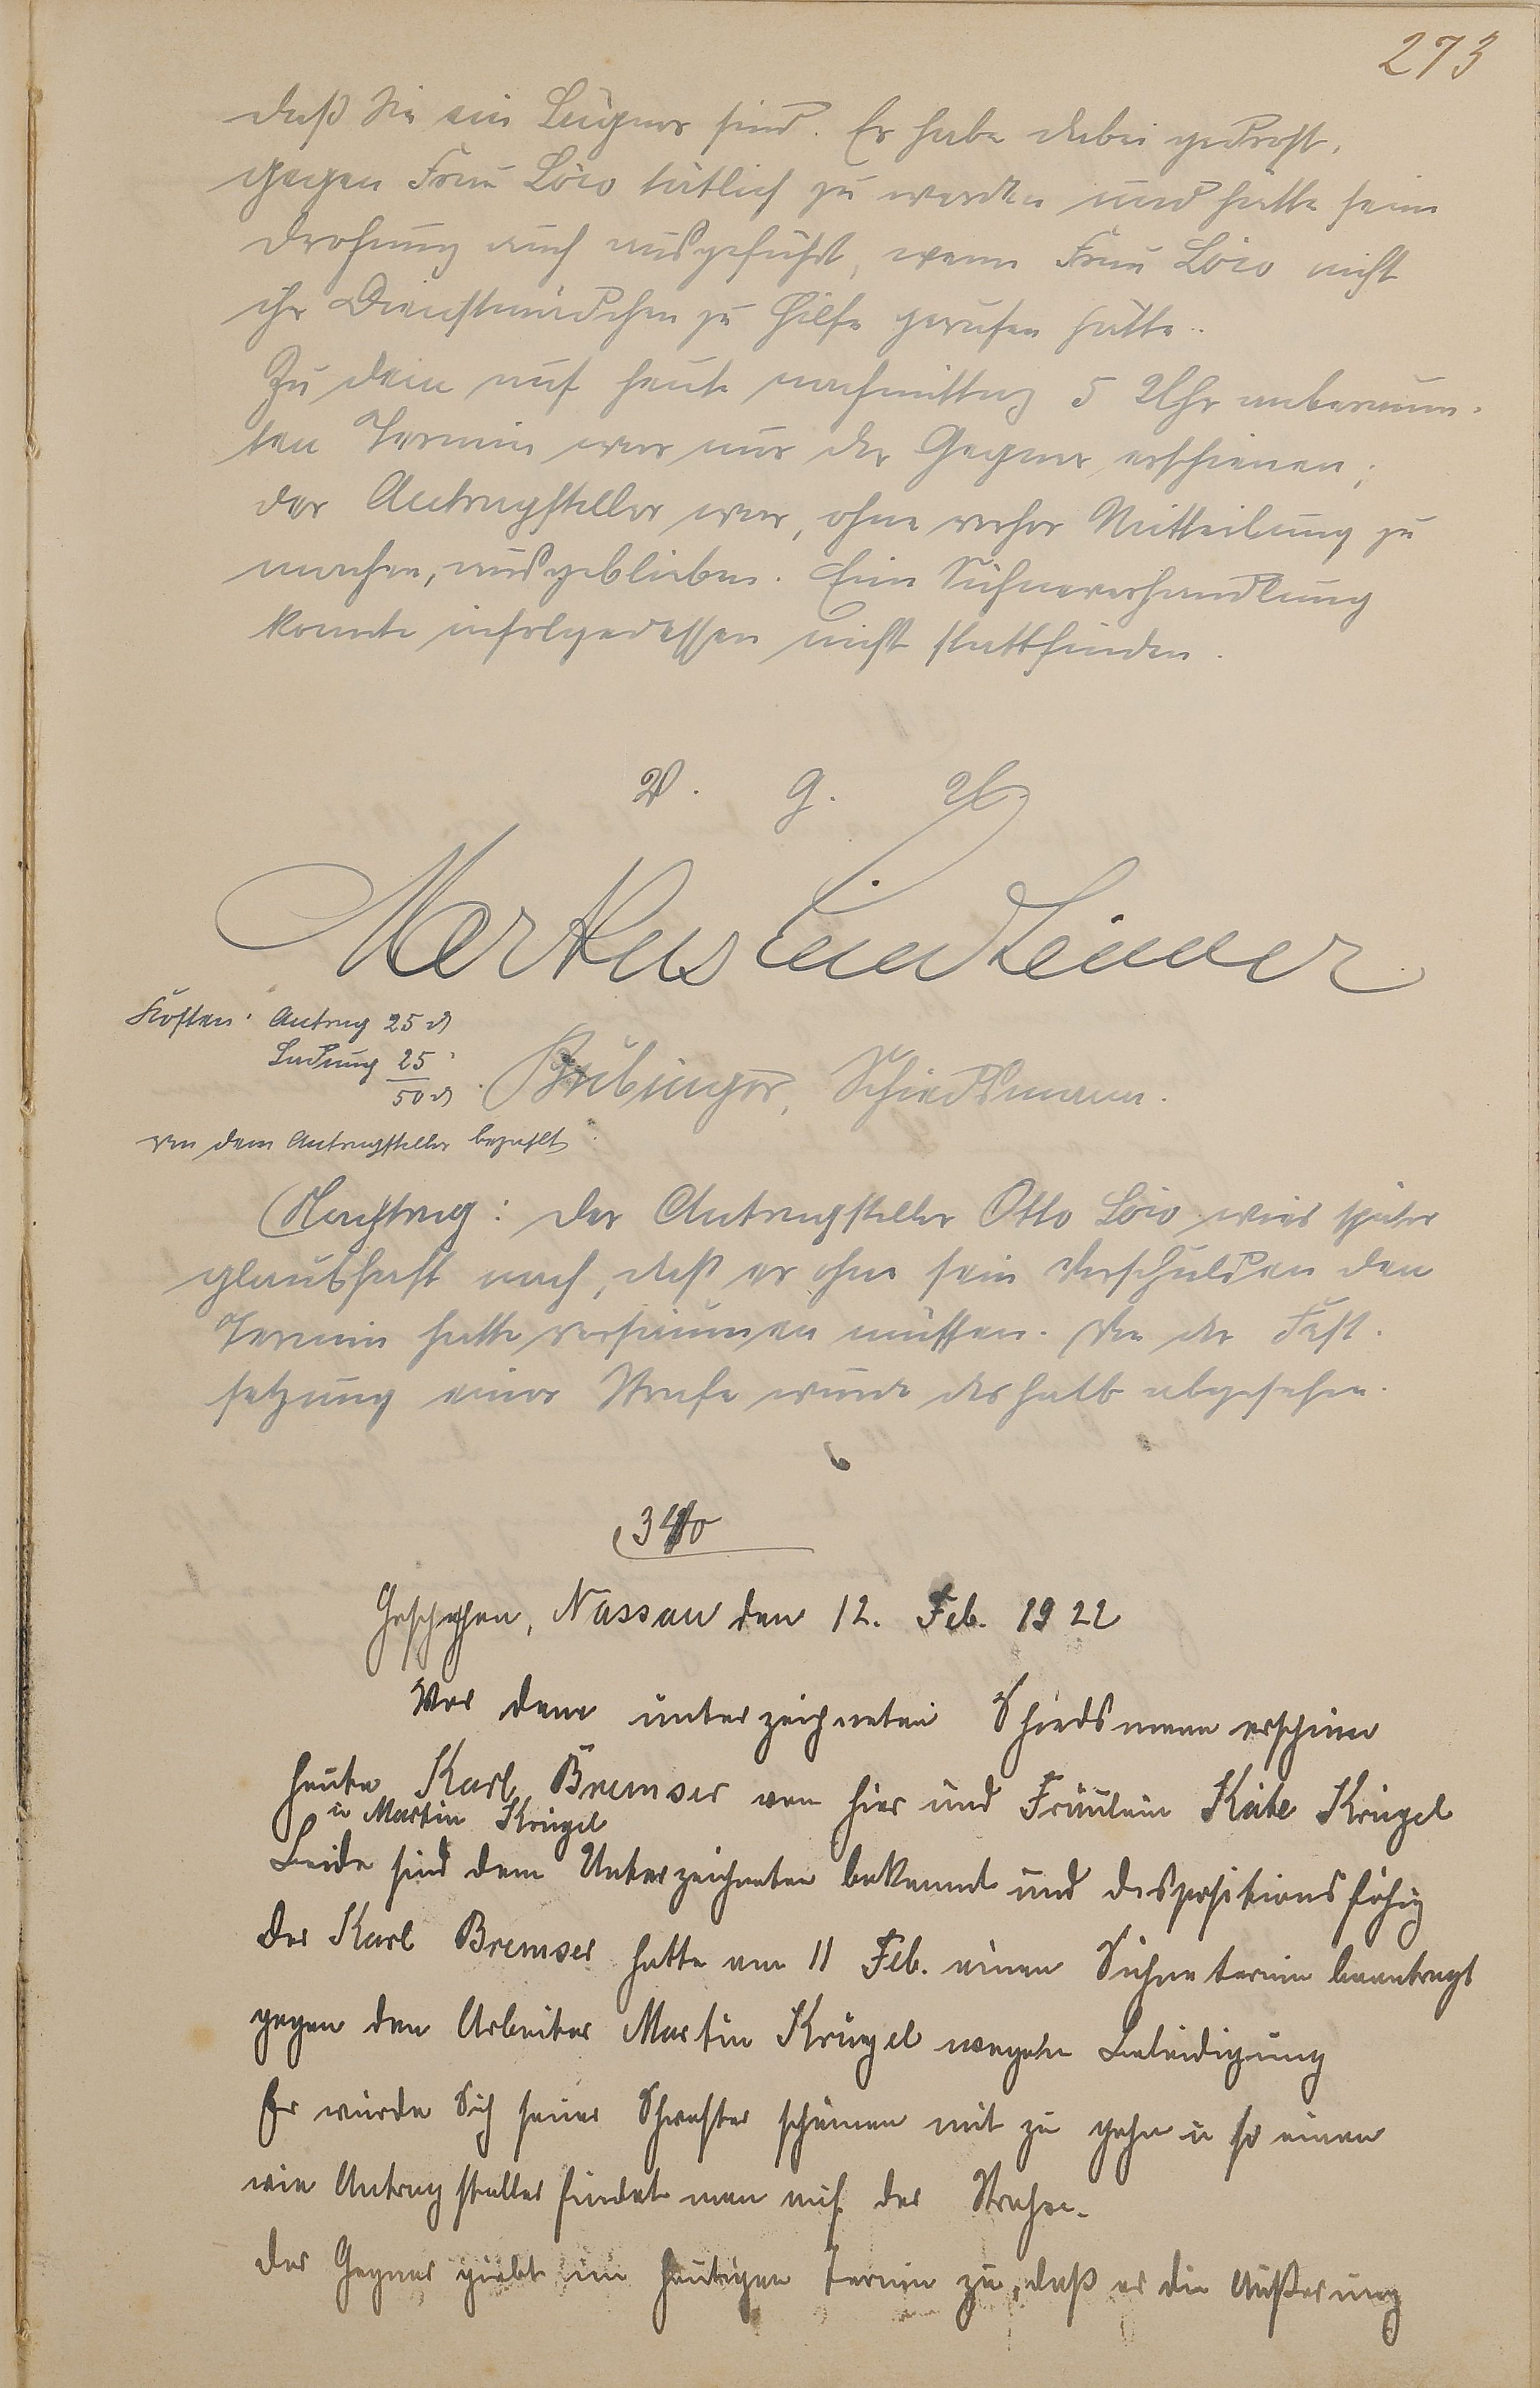 273
daß Sie ein Lügner sind. Er habe dabei gedroht,
gegen Frau Löw tätlich zu werden und hätte seine
Drohung auch ausgeführt, wenn Frau Löw nicht
ihr Dienstmädchen zu Hilfe gerufen hätte.
Zu dem auf heute nachmittag 5 Uhr anberaum-
ten Termin war nur der Gegner erschienen;
der Antragsteller war, ohne vorher Mitteilung zu
machen, ausgeblieben. Eine Sühneverhandlung
konnte infolgedessen nicht stattfinden.
V. g. U.
Markus
Kosten: Antrag 25 ₰
Ladung 25 "
50 ₰
Bubinger, Schiedsmann.
von dem Antragsteller bezahlt
Nachtrag: Der Antragsteller Otto Löw wies später
glaubhaft nach, daß er ohne sein Verschulden den
Termin hatte versäumen müssen. Von der Fest-
setzung einer Strafe wurde deshalb abgesehen.
340
Geschehen, Nassau den 12. Feb. 1922
Vor dem unterzeichneten Schiedsmann erschien
heute Karl Bremser von hier und Fräulein Käte Krügel
u Martin Krügel
Beide sind dem Unterzeichneten bekannt und dispositionsfähig
Der Karl Bremser hatte am 11 Feb. einen Sühnetermin beantragt
gegen den Arbeiter Martin Krügel wegen Beleidigung
Er würde Sich seiner Schwester schämen mit zu gehn u so einen
wie Antragsteller findet man auf der Straße.
Der Gegner giebt im heutigen Termin zu, daß er die Äußerung